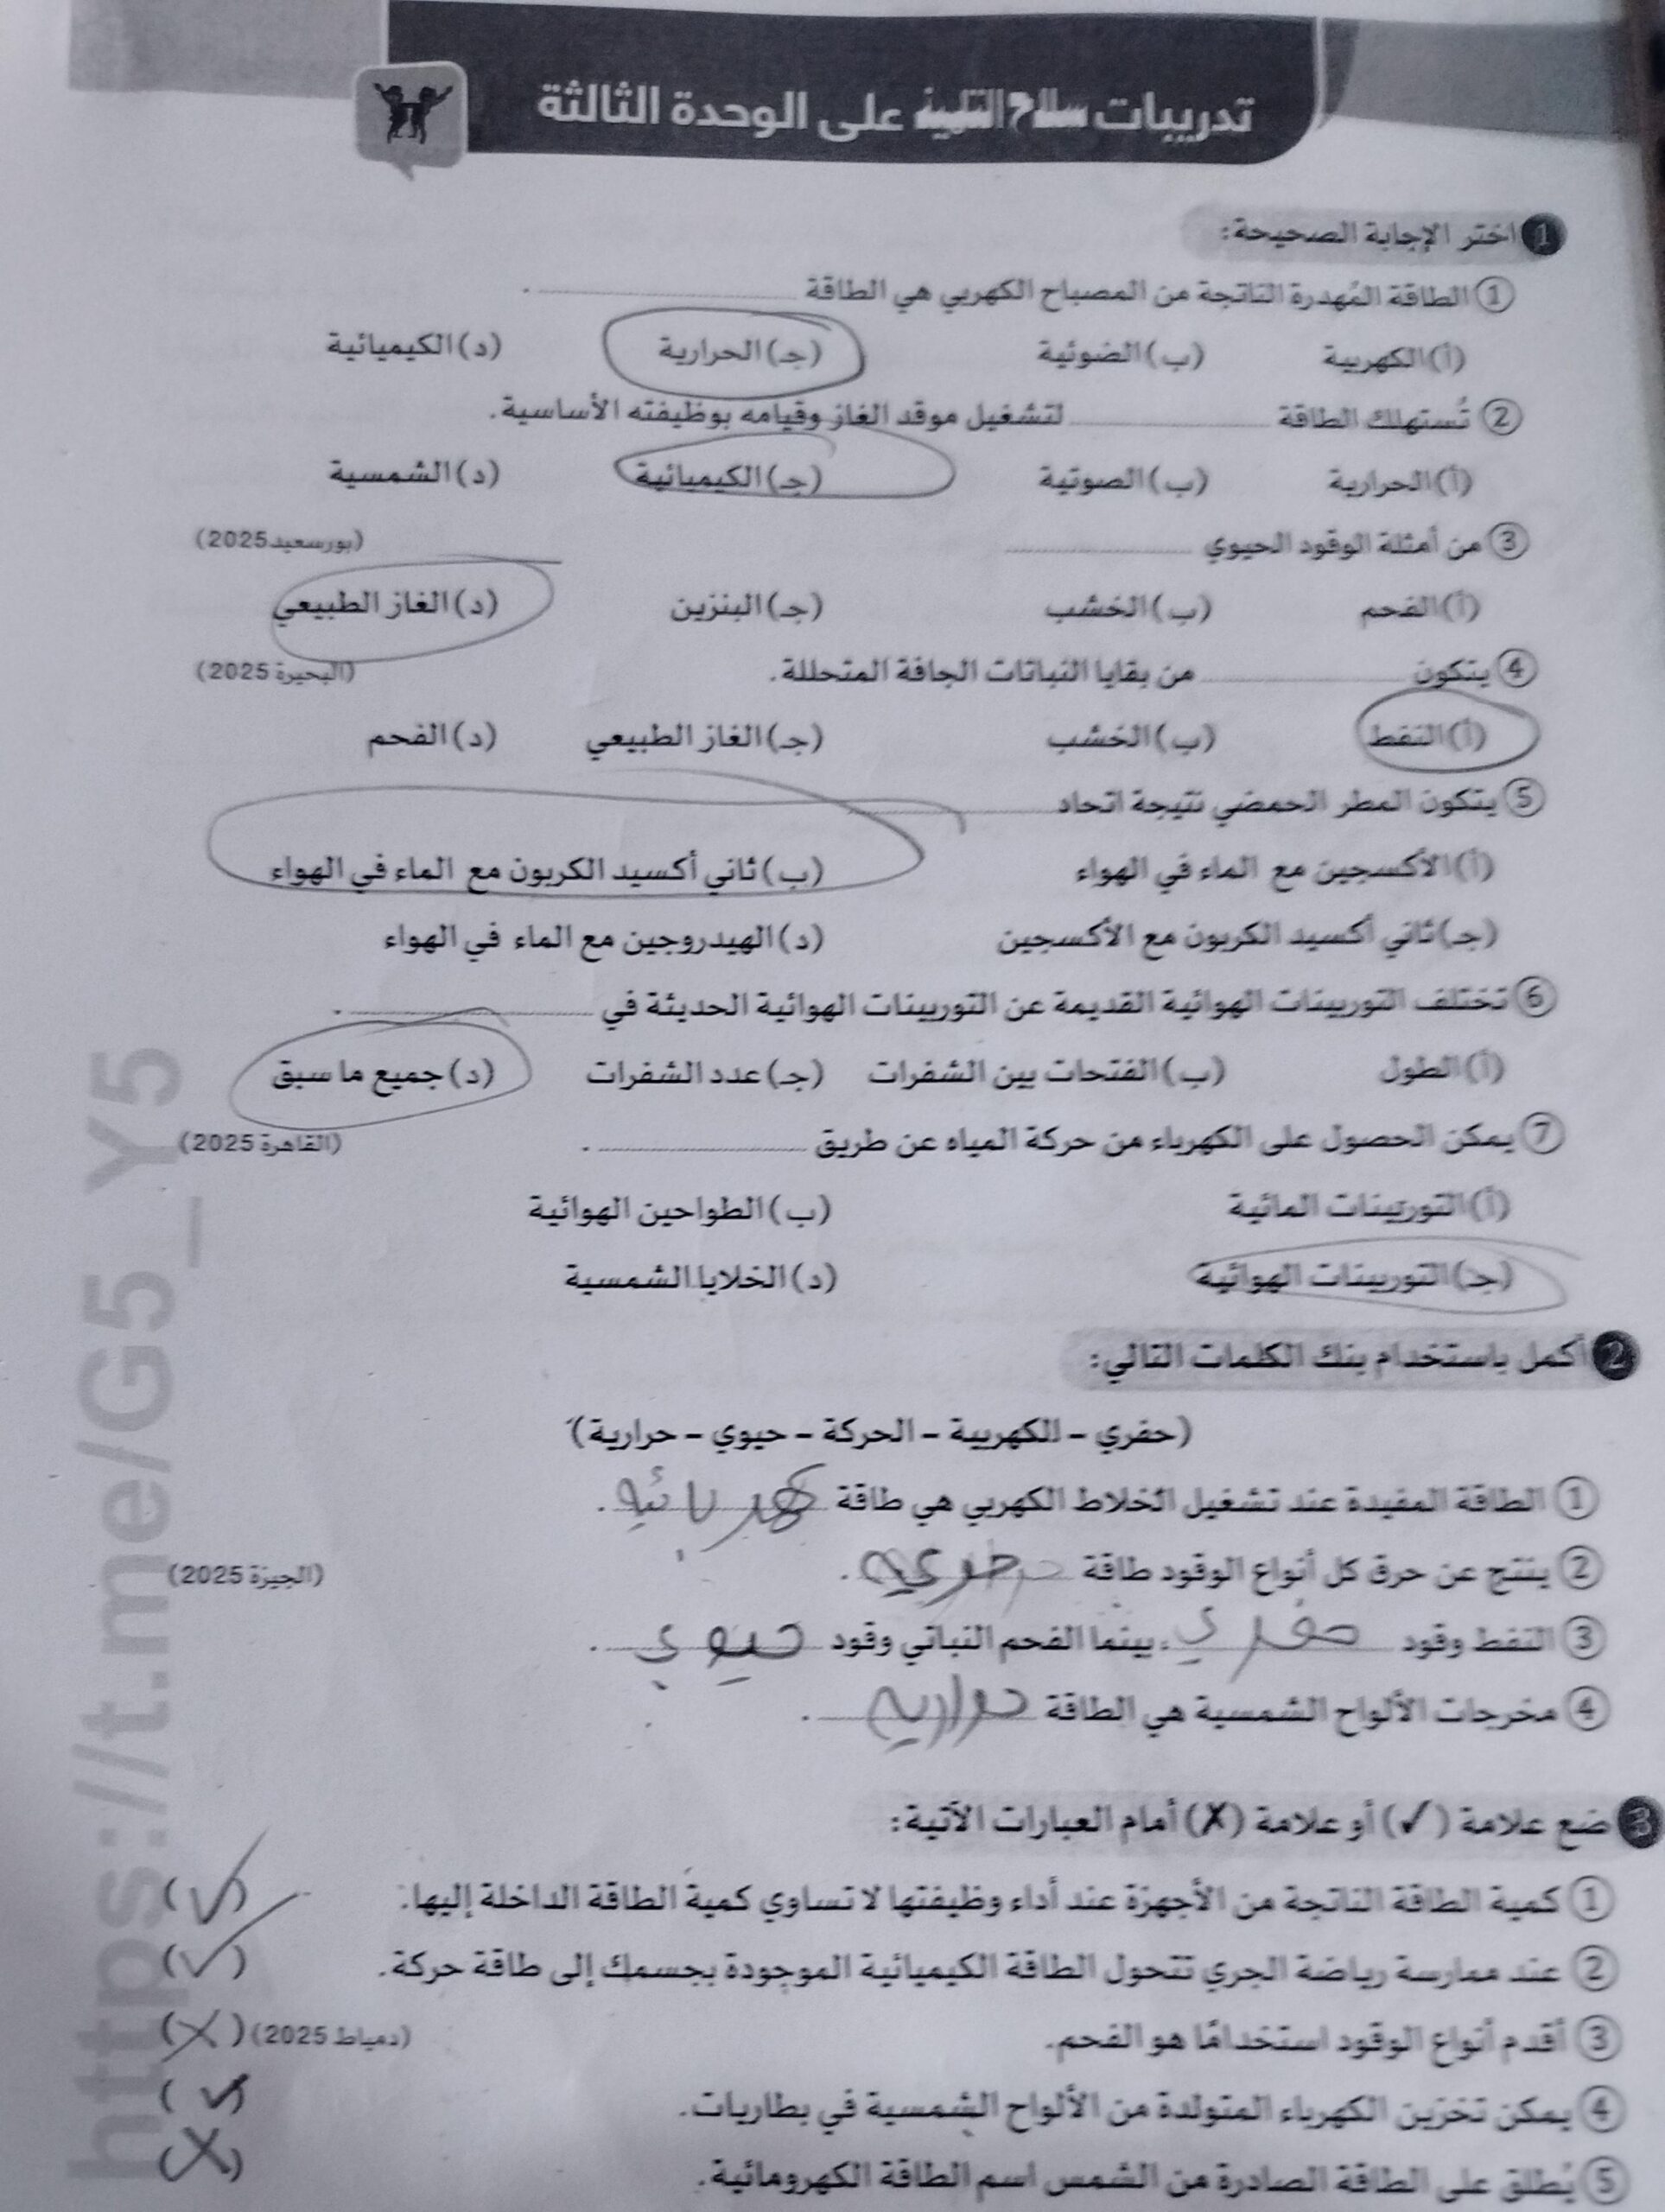 تدريبات سلاح التلميذ على الوحدة الثالثة
1 اختر الإجابة الصحيحة:
① الطاقة المُهدرة الناتجة من المصباح الكهربي هي الطاقة ........ .
(أ) الكهربية (ب) الضوئية (جـ) الحرارية (د) الكيميائية
② تُستهلك الطاقة ........ لتشغيل موقد الغاز وقيامه بوظيفته الأساسية.
(أ) الحرارية (ب) الصوتية (جـ) الكيميائية (د) الشمسية
③ من أمثلة الوقود الحيوي ........ (بورسعيد 2025)
(أ) الفحم (ب) الخشب (جـ) البنزين (د) الغاز الطبيعي
④ يتكون ........ من بقايا النباتات الجافة المتحللة. (البحيرة 2025)
(أ) النفط (ب) الخشب (جـ) الغاز الطبيعي (د) الفحم
⑤ يتكون المطر الحمضي نتيجة اتحاد ........
(أ) الأكسجين مع الماء في الهواء (ب) ثاني أكسيد الكربون مع الماء في الهواء
(جـ) ثاني أكسيد الكربون مع الأكسجين (د) الهيدروجين مع الماء في الهواء
⑥ تختلف التوربينات الهوائية القديمة عن التوربينات الهوائية الحديثة في ........ .
(أ) الطول (ب) الفتحات بين الشفرات (جـ) عدد الشفرات (د) جميع ما سبق
⑦ يمكن الحصول على الكهرباء من حركة المياه عن طريق ........ . (القاهرة 2025)
(أ) التوربينات المائية (ب) الطواحين الهوائية
(جـ) التوربينات الهوائية (د) الخلايا الشمسية
2 أكمل باستخدام بنك الكلمات التالي:
(حفري – الكهربية – الحركة – حيوي – حرارية)
① الطاقة المفيدة عند تشغيل الخلاط الكهربي هي طاقة كهربائيه .
② ينتج عن حرق كل أنواع الوقود طاقة ........ . (الجيزة 2025)
③ النفط وقود حفري ، بينما الفحم النباتي وقود حيوي .
④ مخرجات الألواح الشمسية هي الطاقة حراريه .
3 ضع علامة (✓) أو علامة (✗) أمام العبارات الآتية:
① كمية الطاقة الناتجة من الأجهزة عند أداء وظيفتها لا تساوي كمية الطاقة الداخلة إليها. (✓)
② عند ممارسة رياضة الجري تتحول الطاقة الكيميائية الموجودة بجسمك إلى طاقة حركة. (✓)
③ أقدم أنواع الوقود استخدامًا هو الفحم. (دمياط 2025) (✗)
④ يمكن تخزين الكهرباء المتولدة من الألواح الشمسية في بطاريات. (✓)
⑤ يُطلق على الطاقة الصادرة من الشمس اسم الطاقة الكهرومائية. (✗)
https://t.me/G5_Y5